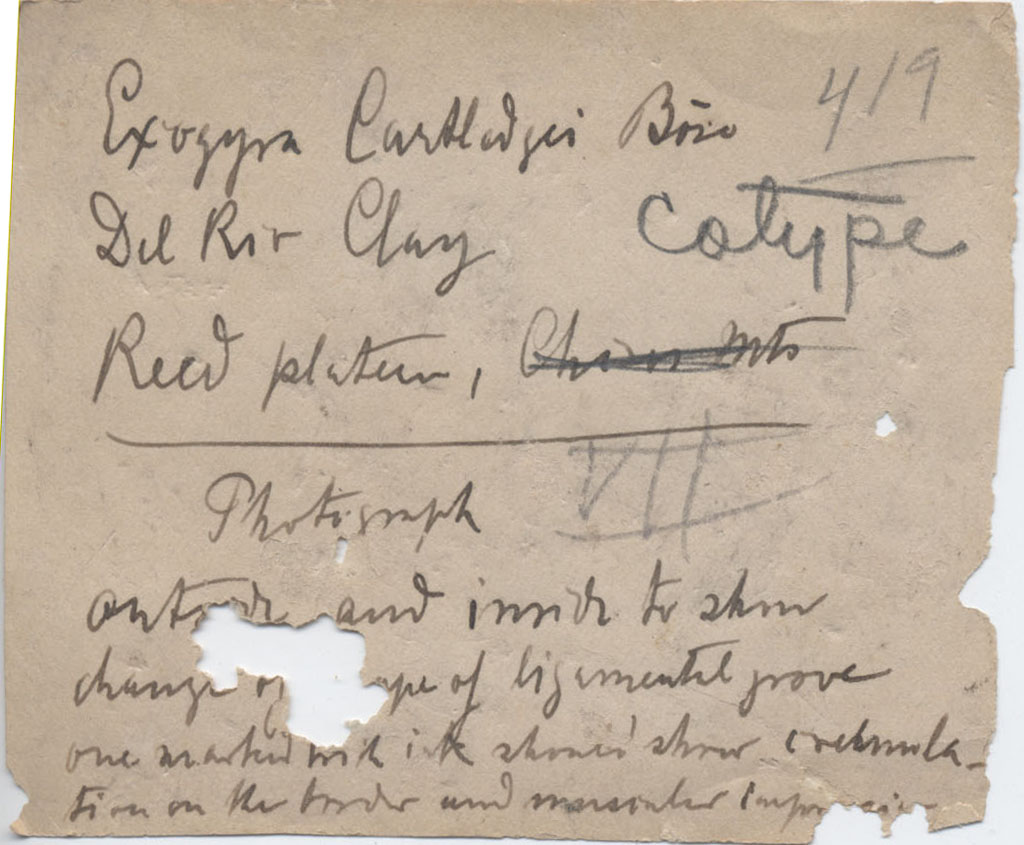 Exogyra Cartledgei Böse 419
Del Rio Clay cotype
Reed plateau, Chisos Mts
VII
Photograph
outside and inside to show
change of ape of ligamental grove
one marked with ink should show crenula-
tion on the border and muscular impression